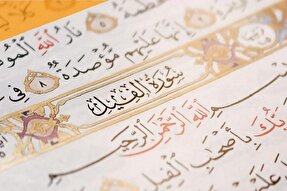 نَارُ ٱللَّهِ ٱلْمُو
إِنَّهَا عَلَيْهِم مُّؤْصَدَةٌ ٨ فِى
سُورَةُ الْفِيلِ
بِسْمِ ٱللَّهِ ٱلرَّحْمَٰنِ ٱلرَّحِيمِ
رَبُّكَ بِأَصْحَٰبِ ٱلْفِيلِ